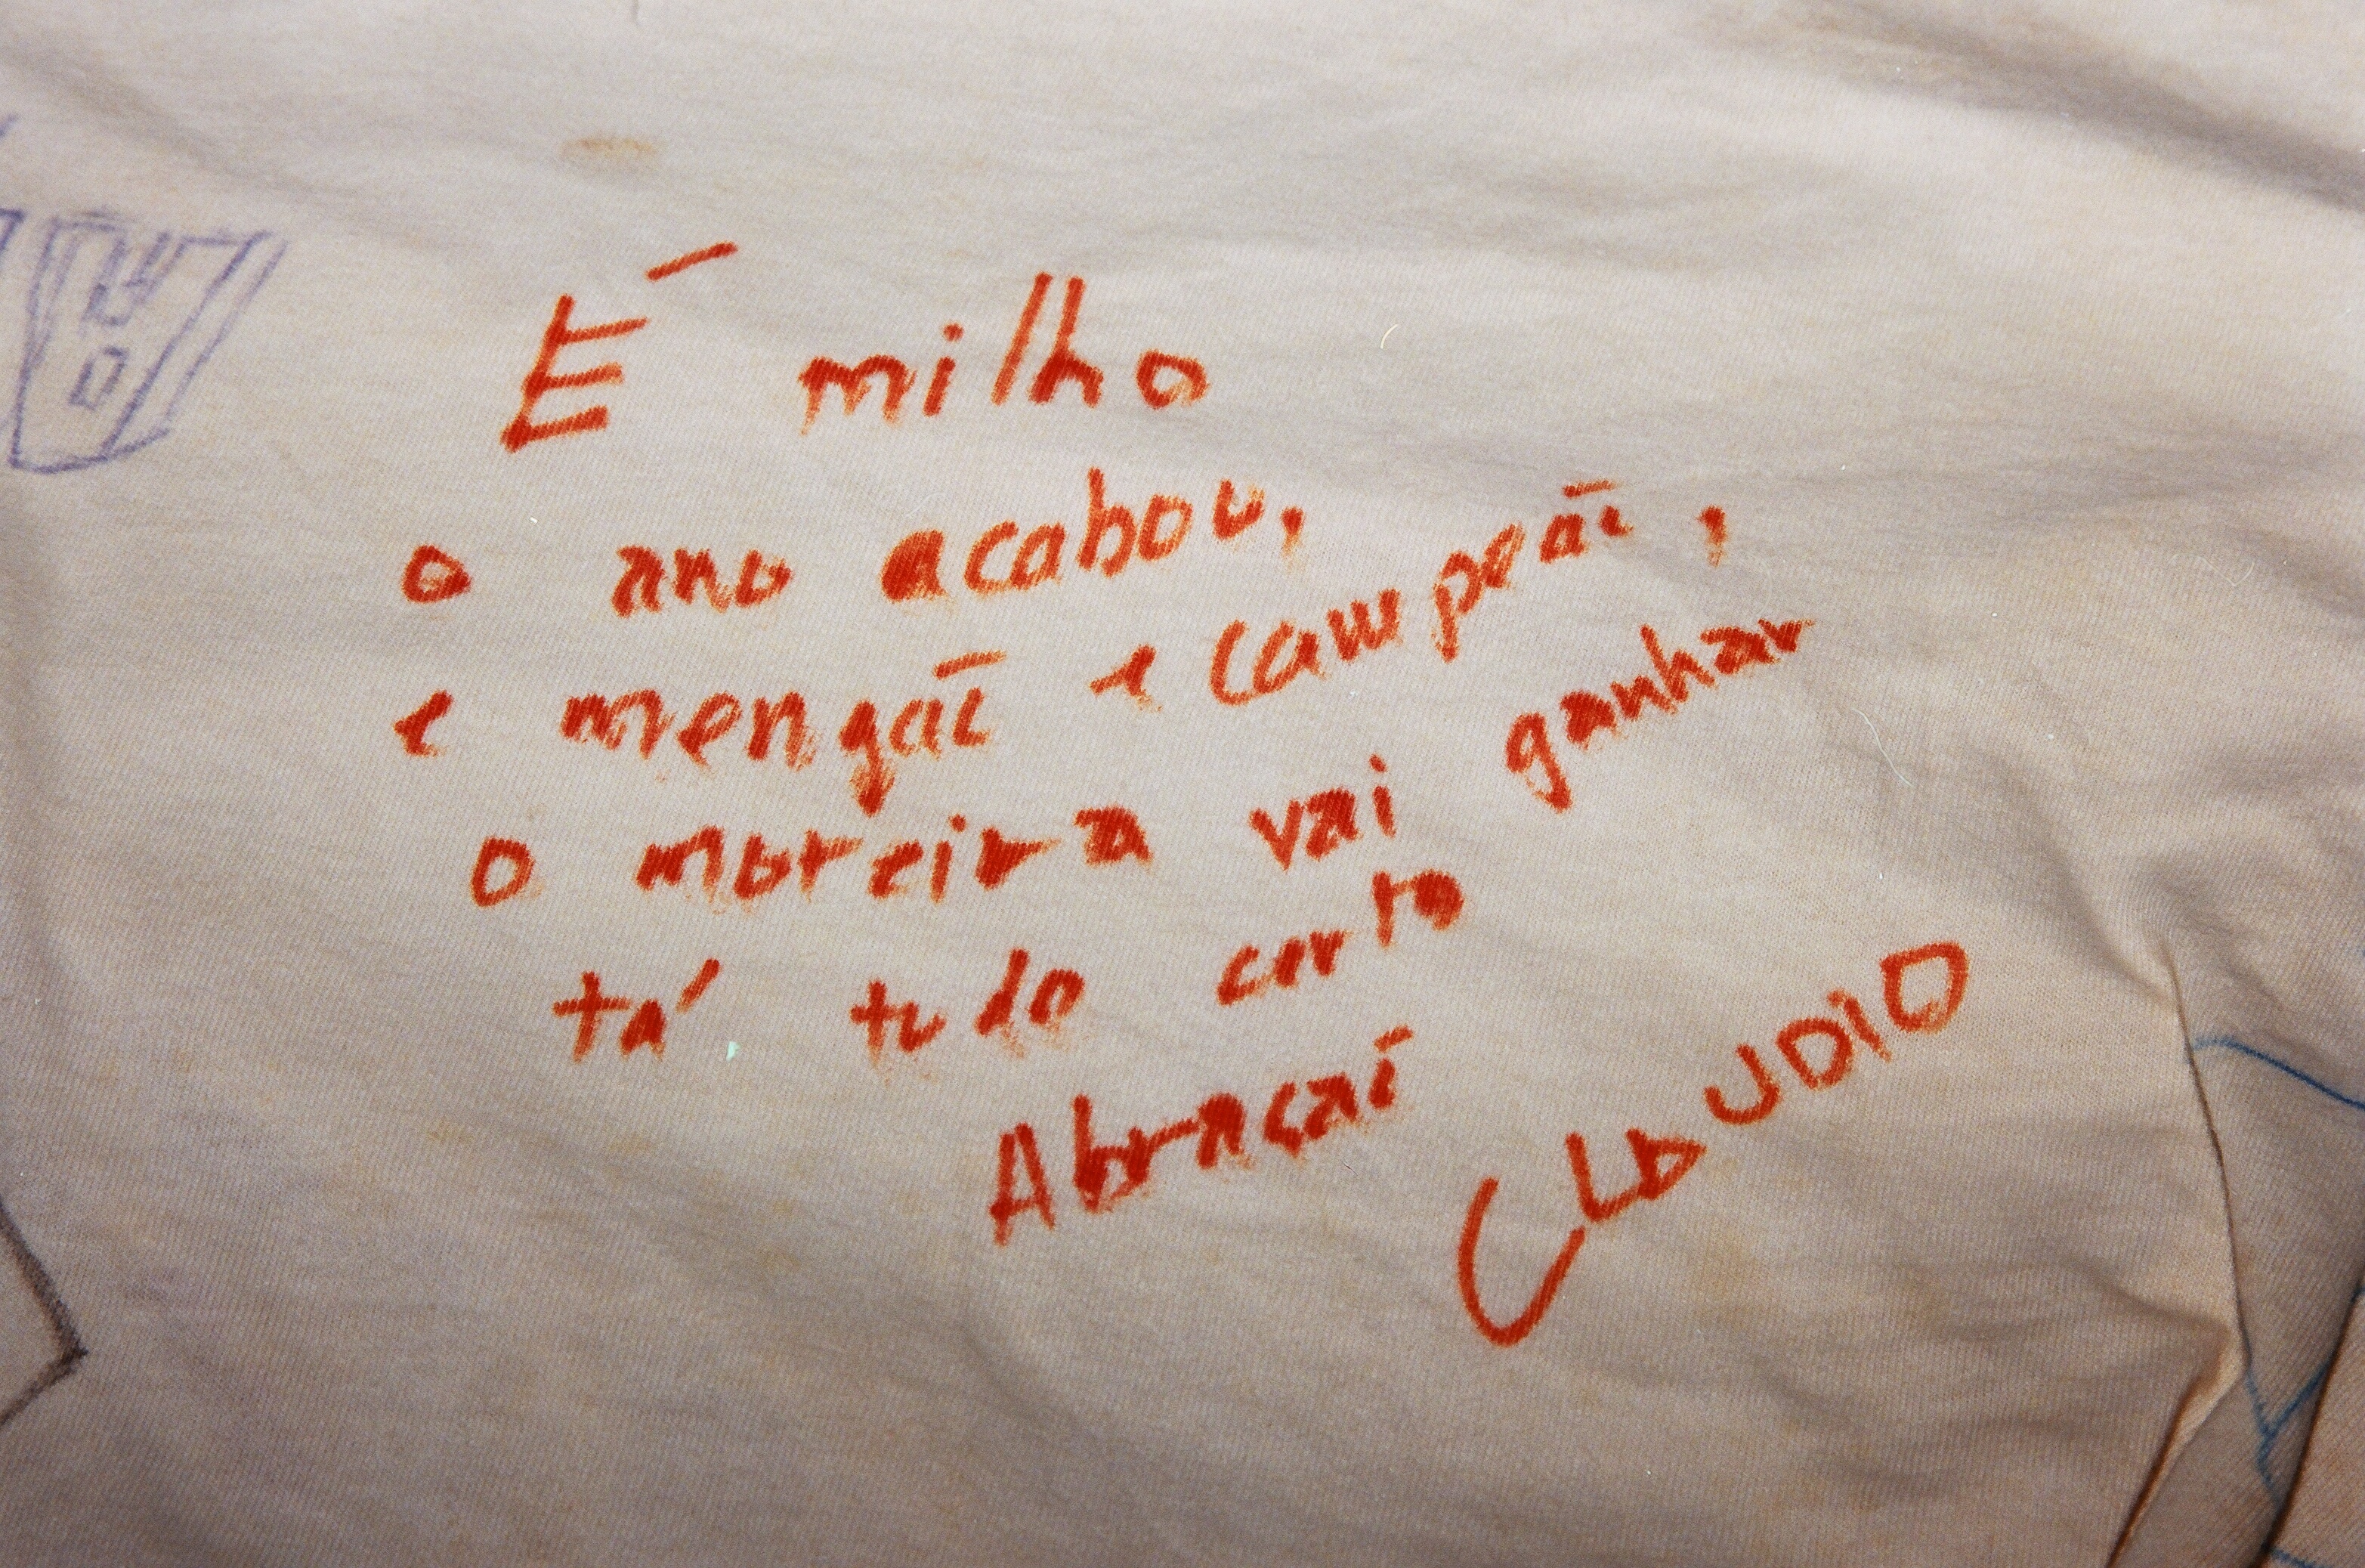 É milho
o ano acabou,
e mengão e campeão,
o moreira vai ganhar
tá tudo certo
Abração
CLAUDIO